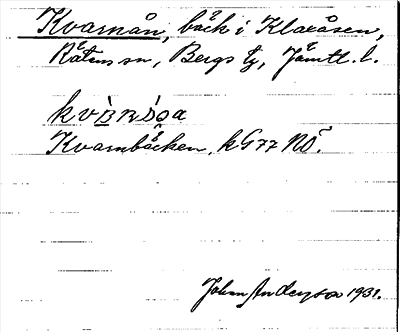 Kvarnån, bäck i Klaxåsen,
Rätans sn, Bergs tg, Jämtl. l.
Kvarnbäcken, k G77 NÖ.
Johan Anderson 1931.